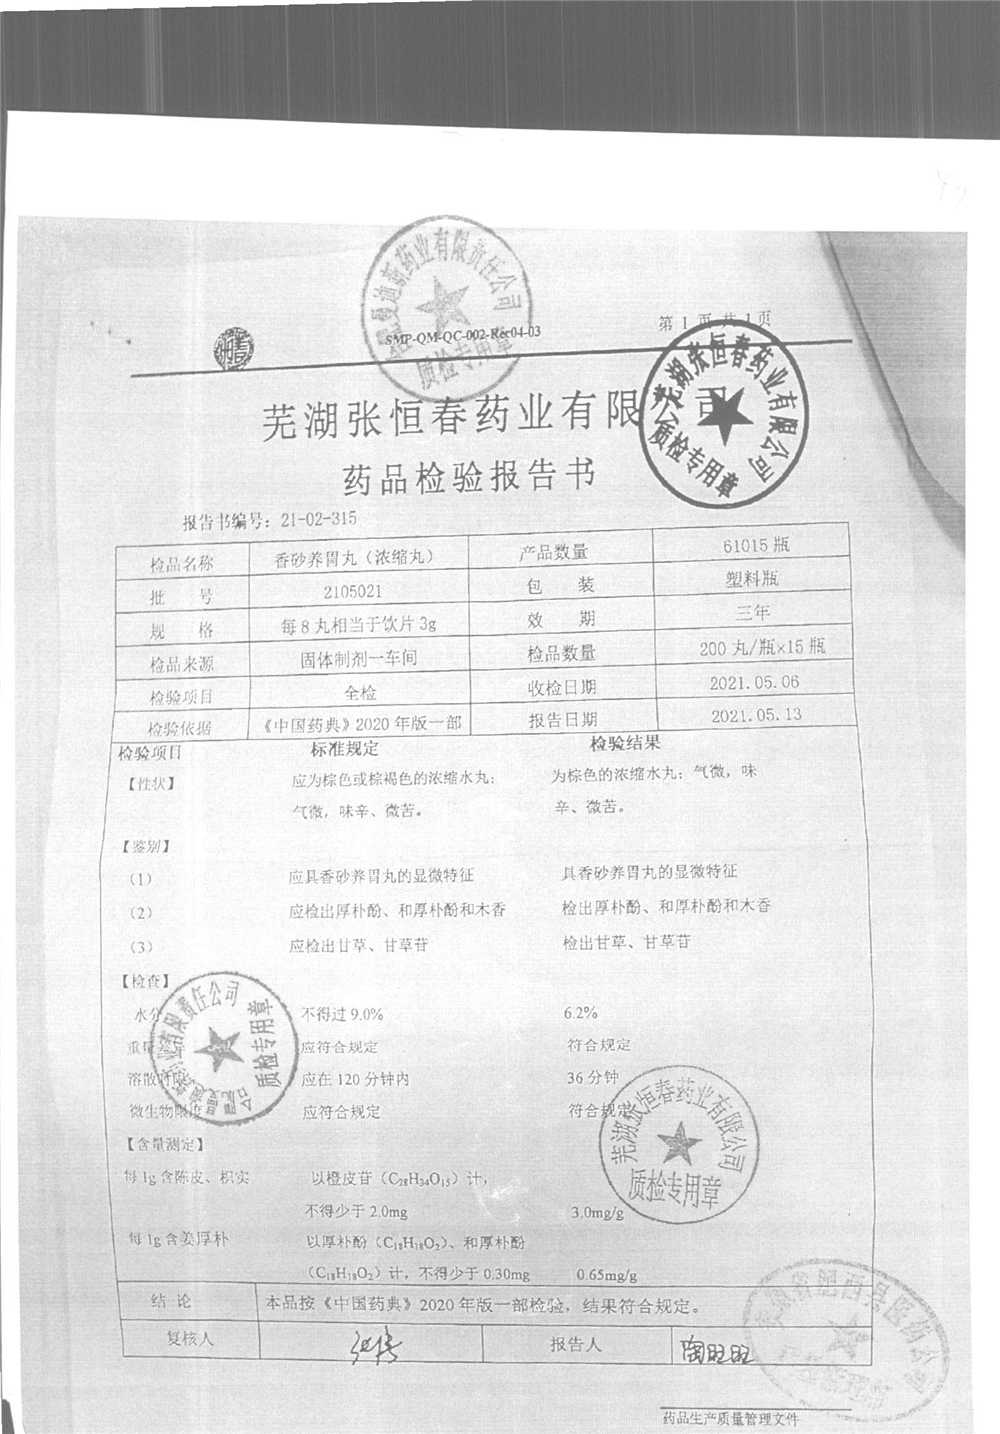 SMP-QM-QC-002-Rec04-03
第 1 页 共 1 页
芜湖张恒春药业有限公司
药品检验报告书
报告书编号：21-02-315
检品名称 香砂养胃丸（浓缩丸） 产品数量 61015 瓶
批 号 2105021 包 装 塑料瓶
规 格 每 8 丸相当于饮片 3g 效 期 三年
检品来源 固体制剂一车间 检品数量 200 丸/瓶×15 瓶
检验项目 全检 收检日期 2021.05.06
检验依据 《中国药典》2020 年版一部 报告日期 2021.05.13
检验项目 标准规定 检验结果
【性状】 应为棕色或棕褐色的浓缩水丸； 为棕色的浓缩水丸；气微，味
气微，味辛、微苦。 辛、微苦。
【鉴别】
（1） 应具香砂养胃丸的显微特征 具香砂养胃丸的显微特征
（2） 应检出厚朴酚、和厚朴酚和木香 检出厚朴酚、和厚朴酚和木香
（3） 应检出甘草、甘草苷 检出甘草、甘草苷
【检查】
水分 不得过 9.0% 6.2%
重量差异 应符合规定 符合规定
溶散时限 应在 120 分钟内 36 分钟
微生物限度 应符合规定 符合规定
【含量测定】
每 1g 含陈皮、枳实 以橙皮苷（C₂₈H₃₄O₁₅）计，
不得少于 2.0mg 3.0mg/g
每 1g 含姜厚朴 以厚朴酚（C₁₈H₁₈O₂）、和厚朴酚
（C₁₈H₁₈O₂）计，不得少于 0.30mg 0.65mg/g
结 论 本品按《中国药典》2020 年版一部检验，结果符合规定。
复核人 报告人 陶旺旺
药品生产质量管理文件
芜湖张恒春药业有限公司
质检专用章
芜湖张恒春药业有限公司
质检专用章
药业有限责任公司
质检专用章
业有限责任公司
质检专用章
肥西县医药公司